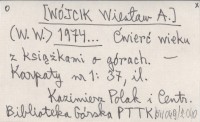 [WÓJCIK Wiesław A.]
(W.W.) 1974... Ćwierć wieku
z książkami o górach. —
Karpaty nr 1: 57, il.
Kazimierz Polak i Centr.
Biblioteka Górska PTTK